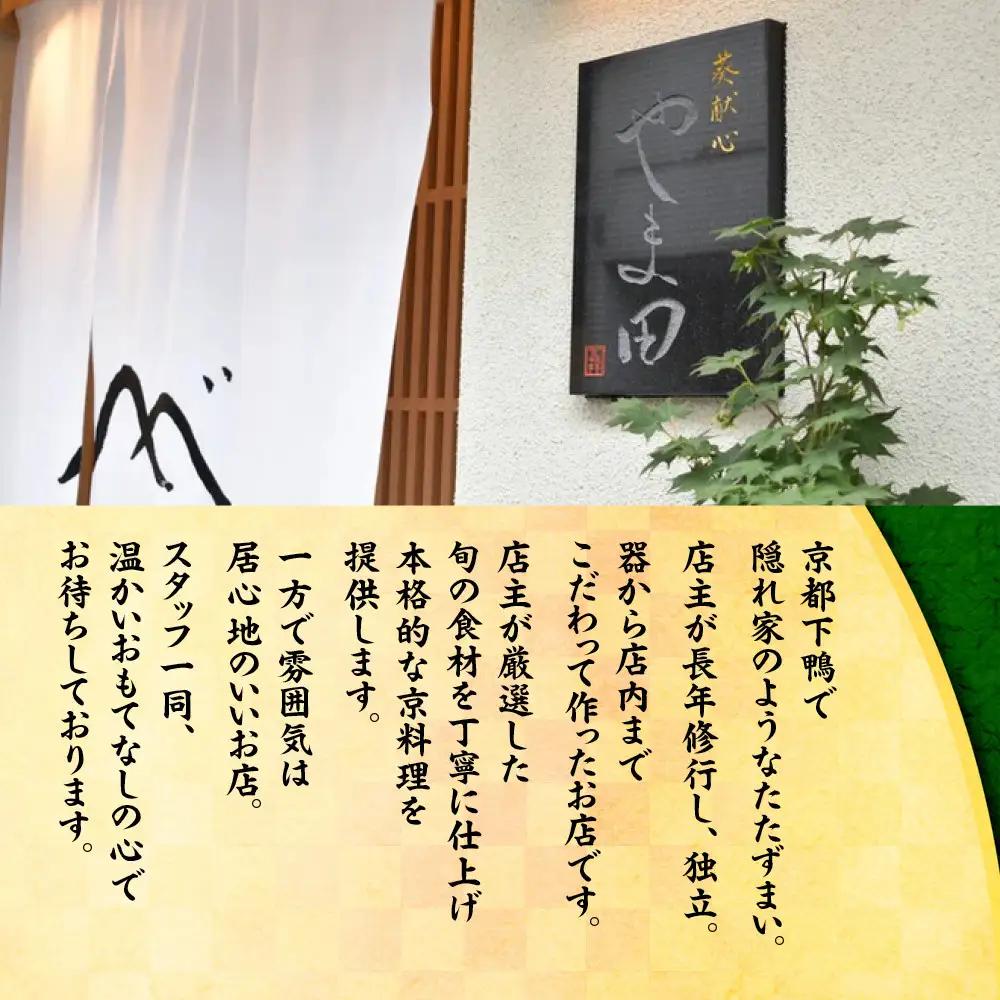 葵献心
やま田
京都下鴨で
隠れ家のようなたたずまい。
店主が長年修行し、独立。
器から店内まで
こだわって作ったお店です。
店主が厳選した
旬の食材を丁寧に仕上げ
本格的な京料理を
提供します。
一方で雰囲気は
居心地のいいお店。
スタッフ一同、
温かいおもてなしの心で
お待ちしております。